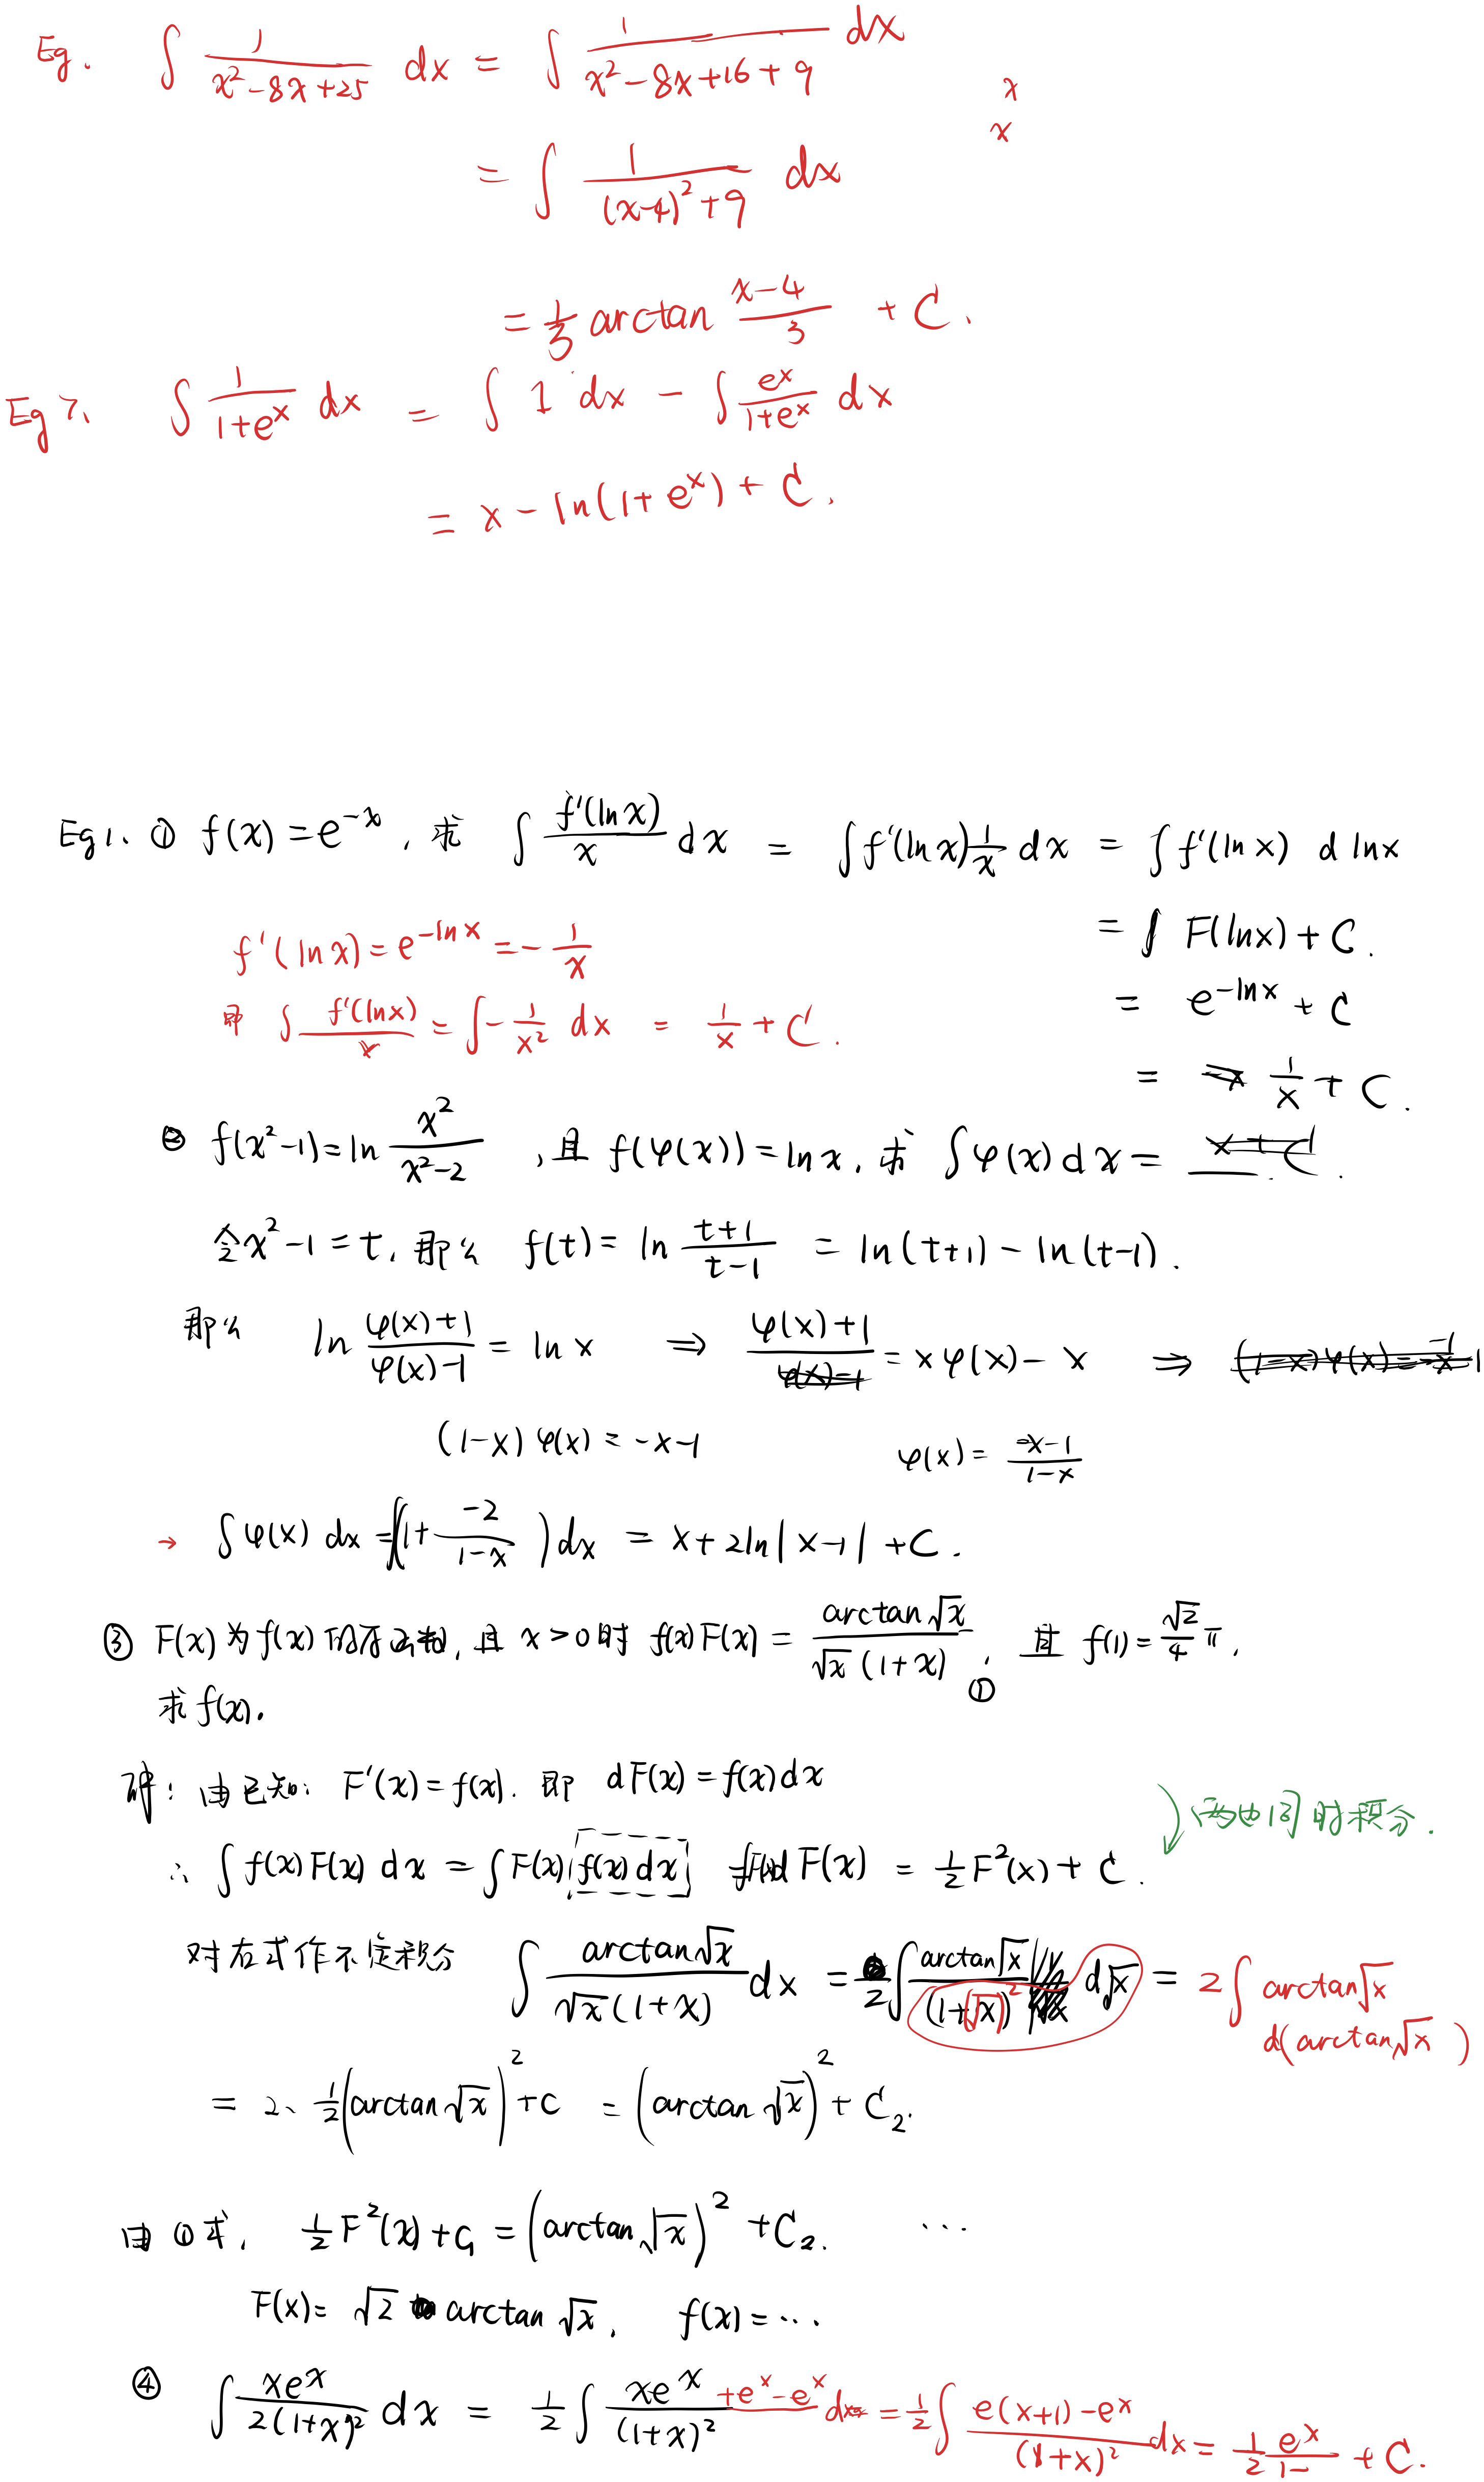 Eg. ∫ 1/(x²-8x+25) dx = ∫ 1/(x²-8x+16+9) dx
x
x
= ∫ 1/((x-4)²+9) dx
= 1/3 arctan (x-4)/3 + C.
Eg 7. ∫ 1/(1+e^x) dx = ∫ 1 dx - ∫ e^x/(1+e^x) dx
= x - ln(1+e^x) + C.
Eg 1. ① f(x) = e^(-x), 求 ∫ f'(ln x)/x dx = ∫ f'(ln x) 1/x dx = ∫ f'(ln x) d ln x
= F(ln x) + C.
f'(ln x) = e^(-ln x) = - 1/x
= e^(-ln x) + C
即 ∫ f'(ln x)/x = ∫ - 1/x² dx = 1/x + C.
= 1/x + C.
② f(x²-1) = ln x²/(x²-2), 且 f(φ(x)) = ln x, 求 ∫ φ(x) dx = x + C.
令 x²-1 = t, 那么 f(t) = ln (t+1)/(t-1) = ln(t+1) - ln(t-1).
那么 ln (φ(x)+1)/(φ(x)-1) = ln x ⇒ φ(x)+1 = xφ(x) - x ⇒
(1-x) φ(x) = -x-1 φ(x) = (-x-1)/(1-x)
→ ∫ φ(x) dx = ∫(1 + -2/(1-x)) dx = x + 2ln|x-1| + C.
③ F(x) 为 f(x) 的原函数, 且 x>0 时 f(x)F(x) = arctan√x/(√x(1+x)) ①, 且 f(1) = √2/4 π,
求 f(x).
解: 由已知: F'(x) = f(x). 即 dF(x) = f(x)dx
两边同时积分.
∴ ∫ f(x)F(x) dx = ∫ F(x) f(x) dx = ∫F(x)d F(x) = 1/2 F²(x) + C.
对右式作不定积分 ∫ arctan√x/(√x(1+x)) dx = 2∫ arctan√x/(1+(√x)²) d√x = 2∫ arctan√x
d(arctan√x)
= 2· 1/2 (arctan√x)² + C = (arctan√x)² + C₂.
由①式, 1/2 F²(x) + C₁ = (arctan√x)² + C₂. ...
F(x) = √2 arctan√x, f(x) = ...
④ ∫ xe^x/(2(1+x)²) dx = 1/2 ∫ (xe^x+e^x-e^x)/(1+x)² dx = 1/2 ∫ (e(x+1)-e^x)/(1+x)² dx = 1/2 e^x/(1- + C.